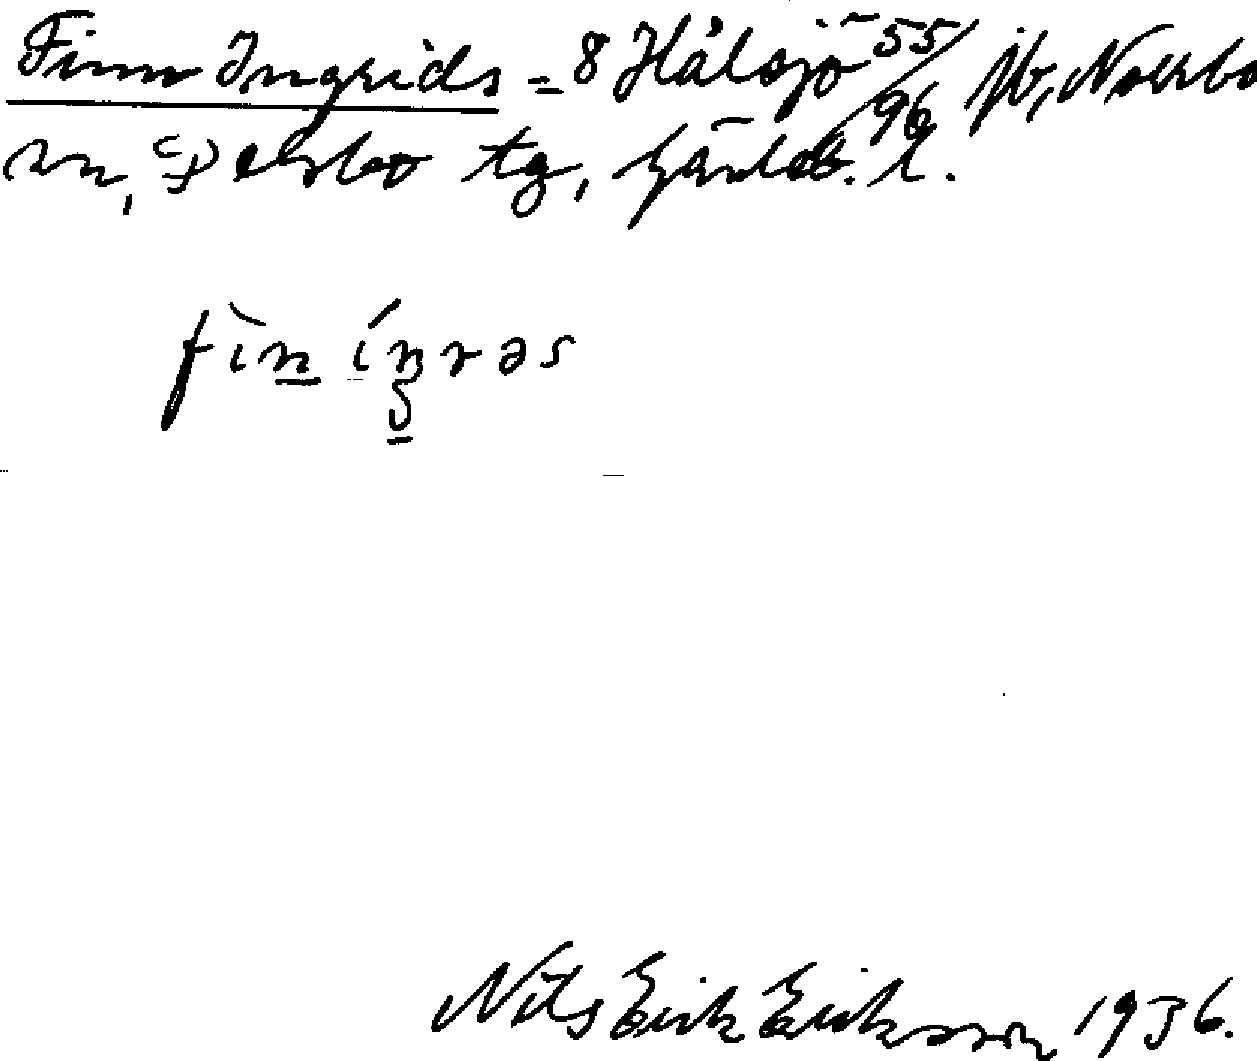 Finn Ingrids = 8 Hålsjö 55/96 jb, Norrbo
sn, Delsbo tg, Gävleb. l.
fìn íŋrəs
Nils Erik Eriksson 1936.